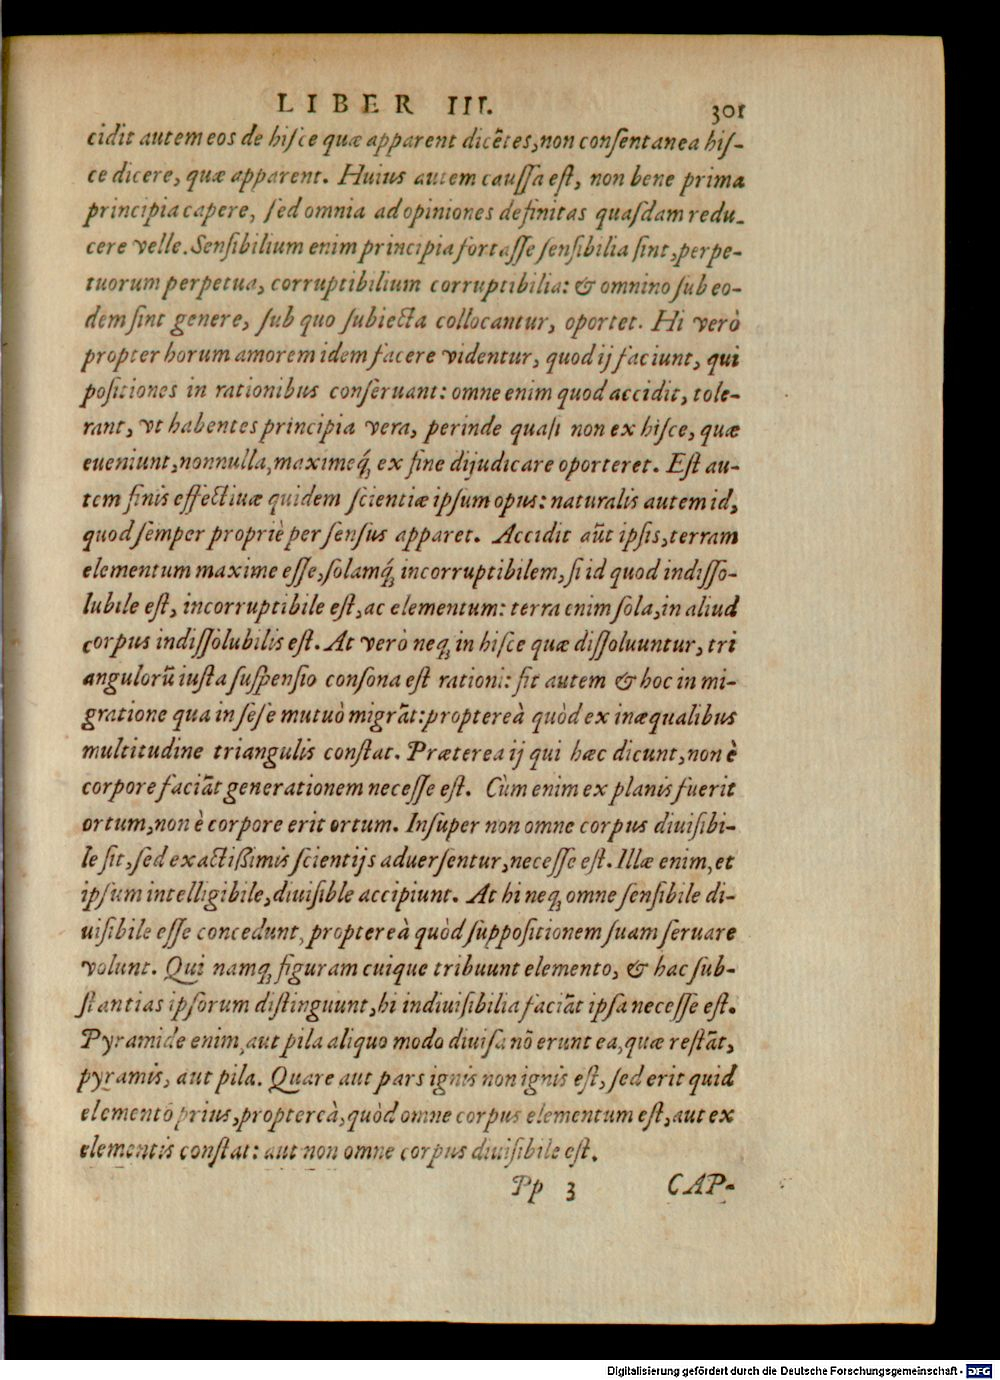 LIBER III. 301
cidit autem eos de hiſce quæ apparent dicẽtes, non conſentanea hiſ-
ce dicere, quæ apparent. Huius autem cauſſa eſt, non bene prima
principia capere, ſed omnia ad opiniones definitas quaſdam redu-
cere velle. Senſibilium enim principia fortaſſe ſenſibilia ſint, perpe-
tuorum perpetua, corruptibilium corruptibilia: & omnino ſub eo-
dem ſint genere, ſub quo ſubiecta collocantur, oportet. Hi verò
propter horum amorem idem facere videntur, quod ij faciunt, qui
poſitiones in rationibus conſeruant: omne enim quod accidit, tole-
rant, vt habentes principia vera, perinde quaſi non ex hiſce, quæ
eueniunt, nonnulla, maximeq́; ex fine dijudicare oporteret. Eſt au-
tem finis effectiuæ quidem ſcientiæ ipſum opus: naturalis autem id,
quod ſemper propriè per ſenſus apparet. Accidit aũt ipſis, terram
elementum maxime eſſe, ſolamq́; incorruptibilem, ſi id quod indiſſo-
lubile eſt, incorruptibile eſt, ac elementum: terra enim ſola, in aliud
corpus indiſſolubilis eſt. At verò neq; in hiſce quæ diſſoluuntur, tri
angulorũ iuſta ſuſpenſio conſona eſt rationi: fit autem & hoc in mi-
gratione qua in ſeſe mutuò migrãt: propterea quòd ex inæqualibus
multitudine triangulis conſtat. Præterea ij qui hæc dicunt, non è
corpore faciãt generationem neceſſe eſt. Cùm enim ex planis fuerit
ortum, non è corpore erit ortum. Inſuper non omne corpus diuiſibi-
le ſit, ſed exactißimis ſcientijs aduerſentur, neceſſe eſt. Illæ enim, et
ipſum intelligibile, diuiſible accipiunt. At hi neq; omne ſenſibile di-
uiſibile eſſe concedunt, propterea quòd ſuppoſitionem ſuam ſeruare
volunt. Qui namq; figuram cuique tribuunt elemento, & hac ſub-
ſtantias ipſorum diſtinguunt, hi indiuiſibilia faciãt ipſa neceſſe eſt.
Pyramide enim, aut pila aliquo modo diuiſa nõ erunt ea, quæ reſtãt,
pyramis, aut pila. Quare aut pars ignis non ignis eſt, ſed erit quid
elemento prius, propterea, quòd omne corpus elementum eſt, aut ex
elementis conſtat: aut non omne corpus diuiſibile eſt.
Pp 3 CAP-
Digitalisierung gefördert durch die Deutsche Forschungsgemeinschaft - DFG